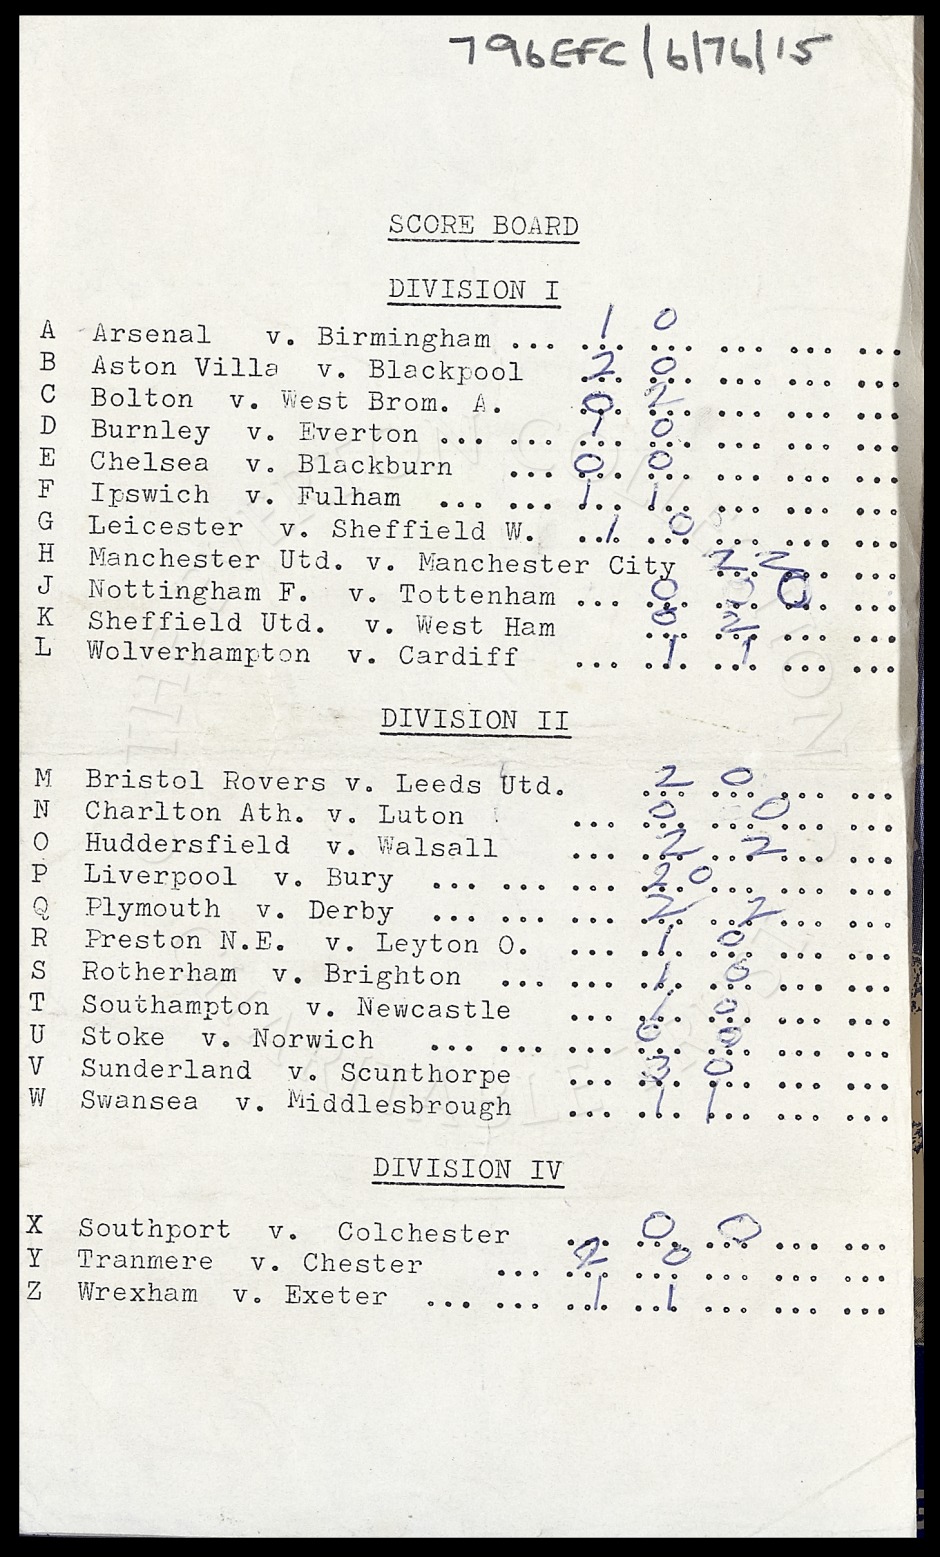 796EFC/6/76/15
SCORE BOARD
DIVISION I
A Arsenal v. Birmingham ... 1 0 ... ... ...
B Aston Villa v. Blackpool 2 0 ... ... ...
C Bolton v. West Brom. A. 0 2 ... ... ...
D Burnley v. Everton ... ... 1 0 ... ... ...
E Chelsea v. Blackburn ... 0 0 ... ... ...
F Ipswich v. Fulham ... ... 1 1 ... ... ...
G Leicester v. Sheffield W. 1 0 ... ... ...
H Manchester Utd. v. Manchester City 2 2 ...
J Nottingham F. v. Tottenham ... 0 0 ...
K Sheffield Utd. v. West Ham 0 2 ... ...
L Wolverhampton v. Cardiff ... 1 1 ... ...
DIVISION II
M Bristol Rovers v. Leeds Utd. 2 0 ... ...
N Charlton Ath. v. Luton ... 0 0 ... ...
O Huddersfield v. Walsall ... 2 2 ... ...
P Liverpool v. Bury ... ... ... 2 0 ... ... ...
Q Plymouth v. Derby ... ... ... 2 2 ... ...
R Preston N.E. v. Leyton O. ... 1 0 ... ...
S Rotherham v. Brighton ... ... 1 0 ... ...
T Southampton v. Newcastle ... 1 0 ... ...
U Stoke v. Norwich ... ... ... 0 0 ... ...
V Sunderland v. Scunthorpe ... 3 0 ... ...
W Swansea v. Middlesbrough ... 1 1 ... ...
DIVISION IV
X Southport v. Colchester ... 0 0 ... ...
Y Tranmere v. Chester ... 2 0 ... ... ...
Z Wrexham v. Exeter ... ... 1 1 ... ... ...